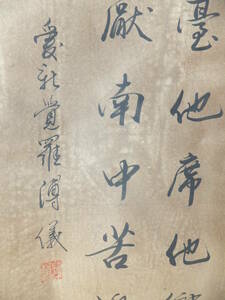 臺他席他
厭南中苦
愛新覺羅溥儀